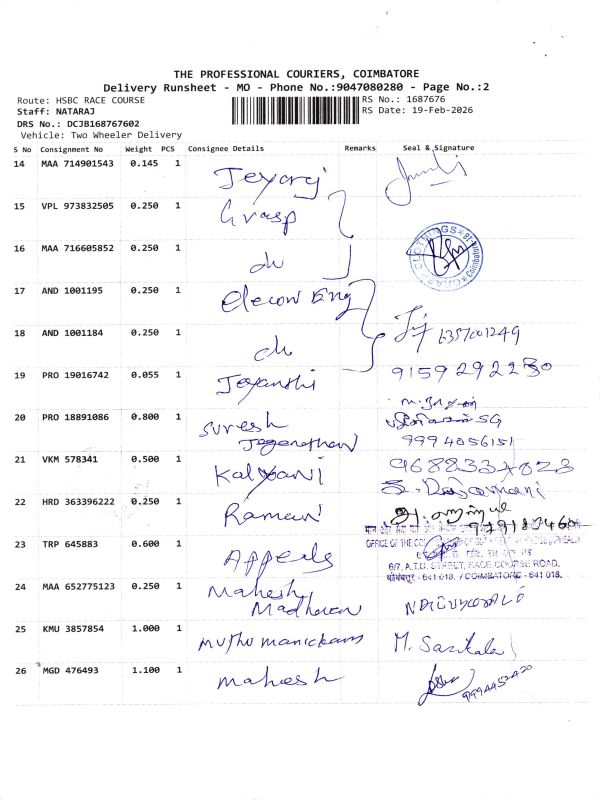 THE PROFESSIONAL COURIERS, COIMBATORE
Delivery Runsheet - MO - Phone No.:9047080280 - Page No.:2
Route: HSBC RACE COURSE
RS No.: 1687676
Staff: NATARAJ
RS Date: 19-Feb-2026
DRS No.: DCJB168767602
Vehicle: Two Wheeler Delivery
S No Consignment No Weight PCS Consignee Details Remarks Seal & Signature
14 MAA 714901543 0.145 1 Jeyaraj
15 VPL 973832505 0.250 1 Grasp
16 MAA 716605852 0.250 1 do
17 AND 1001195 0.250 1 elecon Eng
18 AND 1001184 0.250 1 do 6357001249
19 PRO 19016742 0.055 1 Jeyanthi 9159292230
20 PRO 18891086 0.800 1 Suresh
Jeganathan 9994056151
21 VKM 578341 0.500 1 Kalyani
22 HRD 363396222 0.250 1 Raman
23 TRP 645883 0.600 1 Appeals
OFFICE OF THE
6/7, A.T.D. STREET, RACE COURSE ROAD,
कोयंबत्तूर - 641 018. / COIMBATORE - 641 018.
24 MAA 652775123 0.250 1 Mahesh
Madhavan
25 KMU 3857854 1.000 1 Muthu manickam M. Sasikala
26 MGD 476493 1.100 1 mahesh